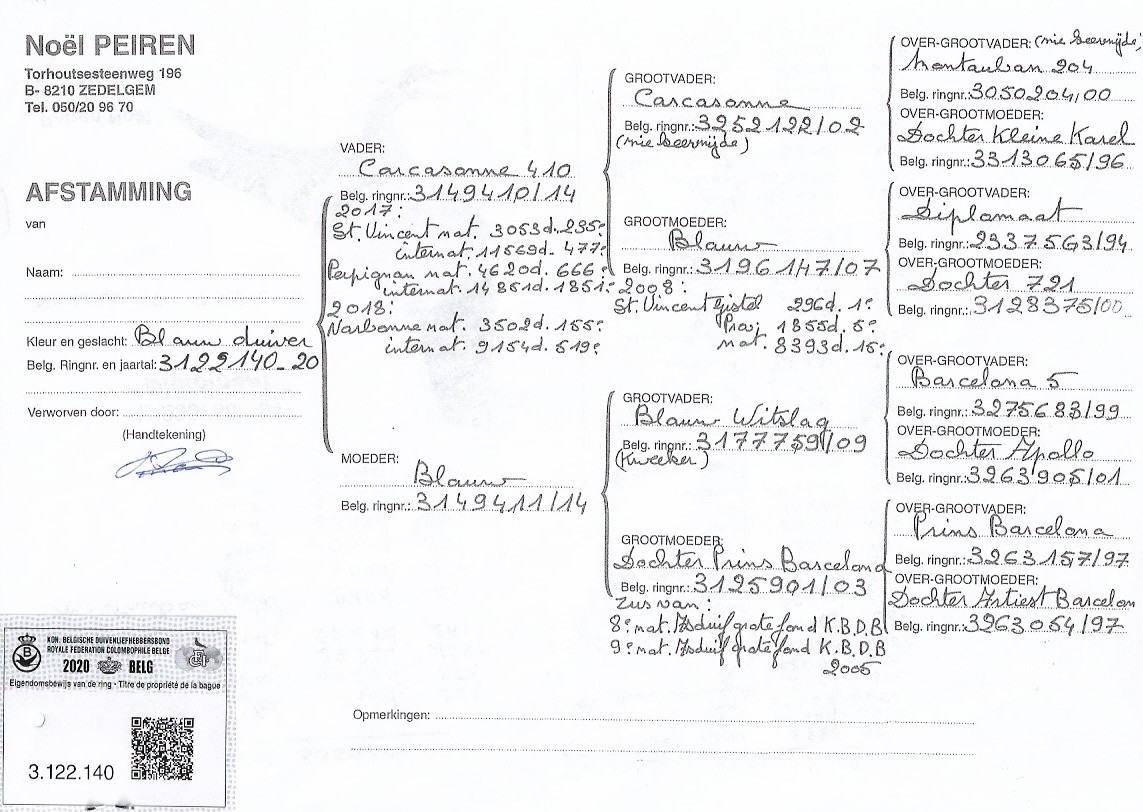 Noël PEIREN
Torhoutsesteenweg 196
B- 8210 ZEDELGEM
Tel. 050/20 96 70
AFSTAMMING
van
Naam:
Kleur en geslacht: Blauw duiver
Belg. Ringnr. en jaartal: 3122140-20
Verworven door:
(Handtekening)
VADER:
Carcasonne 410
Belg. ringnr.: 3149410/14
2017:
St. Vincent nat. 3053d. 235e
internat. 11569d. 477e
Perpignan nat. 4620d. 666e
internat. 14851d. 1851e
2018:
Narbonne nat. 3502d. 155e
internat. 9154d. 519e
MOEDER:
Blauw
Belg. ringnr.: 3149411/14
GROOTVADER:
Carcasonne
Belg. ringnr.: 3252122/02
(nie keernijde)
GROOTMOEDER:
Blauw
Belg. ringnr.: 3196147/07
2008:
St. Vincent Gistel 296d. 1e
Prov. 1855d. 5e
nat. 8393d. 15e
GROOTVADER:
Blauw Witslag
Belg. ringnr.: 3177759/09
(Kweeker)
GROOTMOEDER:
Dochter Prins Barcelona
Belg. ringnr.: 3125901/03
Zus van:
8e nat. Asduif grote fond K.B.D.B
9e nat. Asduif grote fond K.B.D.B
2005
OVER-GROOTVADER: (nie keernijde)
Montauban 204
Belg. ringnr.: 3050204/00
OVER-GROOTMOEDER:
Dochter Kleine Karel
Belg. ringnr.: 3313065/96
OVER-GROOTVADER:
Diplomaat
Belg. ringnr.: 2337563/94
OVER-GROOTMOEDER:
Dochter 721
Belg. ringnr.: 3128375/00
OVER-GROOTVADER:
Barcelona 5
Belg. ringnr.: 3275683/99
OVER-GROOTMOEDER:
Dochter Apollo
Belg. ringnr.: 3263905/01
OVER-GROOTVADER:
Prins Barcelona
Belg. ringnr.: 3263157/97
OVER-GROOTMOEDER:
Dochter Artiest Barcelon
Belg. ringnr.: 3263054/97
Opmerkingen:
KON. BELGISCHE DUIVENLIEFHEBBERSBOND
ROYALE FEDERATION COLOMBOPHILE BELGE
2020 BELG
Eigendomsbewijs van de ring - Titre de propriété de la bague
3.122.140